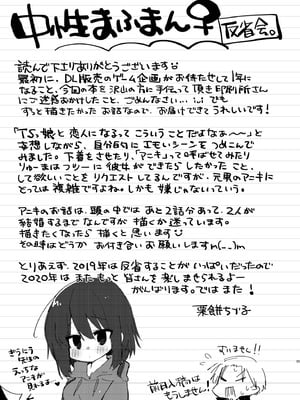 中性まふまん♀ 反省会。
読んで下さりありがとうございます
最初に、DL販売のゲーム企画がお待たせして1年に
なること、今回の本を沢山の方に手伝って頂き印刷所さん
にご迷惑おかけしたこと、ごめんなさい…:;でも
ずっと描きたかったお話なので、お届けできてうれしいです!
「TS娘と恋人になるってこういうことだよなぁ~~」と
妄想しながら、自分的にエモいシーンをつめこんで
みました。下着をさせたり、「アニキ」って呼ばせてみたり
りゅーまはフツーに彼女ができたらしたかったこと、
して欲しいことをリクエストしてるんですが、元男のアニキに
とっては複雑ですよね。しかも嫌じゃないっていう。
アニキのお話は、頭の中ではあと2話分あって、2人が
結婚するまでなんですが描くか迷っています。
描きたくなったら描くと思います
その時はどうかお付き合いお願いしますm(__)m
とりあえず、2019年は反省することがいっぱいだったので
2020年はまたきっと皆さんを楽しませられるよー
がんばります。ではまた!
栗餅ちづ子
すいません!!
前日入稿は
もうしません!